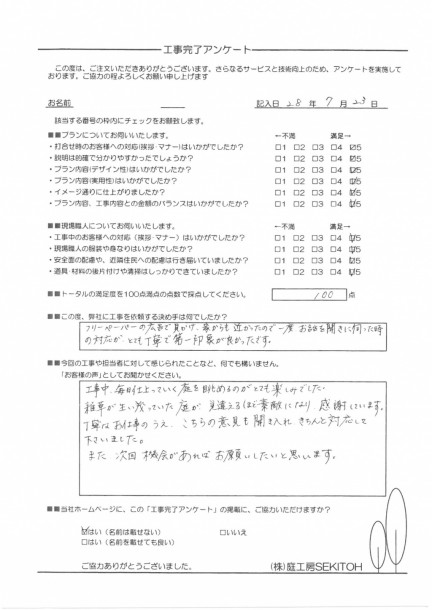 工事完了アンケート
この度は、ご注文いただきありがとうございます。さらなるサービスと技術向上のため、アンケートを実施して
おります。ご協力の程よろしくお願い申し上げます
お名前 記入日 28 年 7 月 23 日
該当する番号の枠内にチェックをお願致します。
■■プランについてお伺いいたします。 ←不満 満足→
・打合せ時のお客様への対応(挨拶・マナー)はいかがでしたか? □1 □2 □3 □4 ☑5
・説明は的確で分かりやすかったでしょうか? □1 □2 □3 □4 ☑5
・プラン内容(デザイン性)はいかがでしたか? □1 □2 □3 □4 ☑5
・プラン内容(実用性)はいかがでしたか? □1 □2 □3 □4 ☑5
・イメージ通りに仕上がりましたか? □1 □2 □3 □4 ☑5
・プラン内容、工事内容との金額のバランスはいかがでしたか? □1 □2 □3 □4 ☑5
■■現場職人についてお伺いいたします。 ←不満 満足→
・工事中のお客様への対応(挨拶・マナー)はいかがでしたか? □1 □2 □3 □4 ☑5
・現場職人の服装や身なりはいかがでしたか? □1 □2 □3 □4 ☑5
・安全面の配慮や、近隣住民への配慮は行き届いていましたか? □1 □2 □3 □4 ☑5
・道具・材料の後片付けや清掃はしっかりできていましたか? □1 □2 □3 □4 ☑5
■■トータルの満足度を100点満点の点数で採点してください。 100 点
■■この度、弊社に工事を依頼する決め手は何でしたか?
フリーペーパーの広告で見かけ、家からも近かったので一度お話を聞きに伺った時
の対応が、とても丁寧で第一印象が良かったです。
■■今回の工事や担当者に対して感じられたことなど、何でも構いません。
「お客様の声」としてお聞かせください。
工事中、毎日仕上っていく庭を眺めるのがとても楽しみでした。
雑草が生い茂っていた庭が見違えるほど素敵になり感謝しています。
丁寧なお仕事のうえ、こちらの意見も聞き入れ、きちんと対応して
下さいました。
また次回機会があればお願いしたいと思います。
■■当社ホームページに、この「工事完了アンケート」の掲載に、ご協力いただけますか?
☑はい (名前は載せない) □いいえ
□はい (名前を載せても良い)
ご協力ありがとうございました。 (株)庭工房SEKITOH